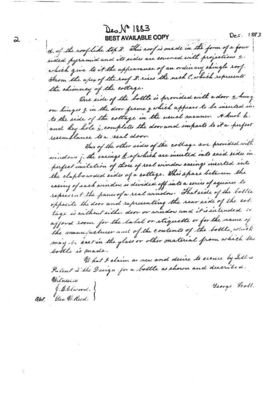 Des. No 1883
2
BEST AVAILABLE COPY
Des. 1883
d. of the rooflike top D. This roof is made in the form of a four
sided pyramid and its sides are covered with projections e
which give to it the appearance of an ordinary shingle roof.
From the apex of the roof D. rises the neck C. which represents
the chimney of the cottage.
One side of the bottle is provided with a door f. hung
on hinges g in the door frame which appears to be inserted in-
to the side of the cottage in the usual manner. A knob h.
and key hole i, complete the door and imparts to it a perfect
resemblance to a real door.
Two of the other sides of the cottage are provided with
window j. the casings of which are inserted into said sides in
perfect imitation of those of real window casings inserted into
the clapboarded sides of a cottage. The space between the
casing of each window is divided off into a series of squares to
represent the panes of a real window. That side of the bottle
opposite the door and representing the rear side of the cot-
tage is without either door or window and it is intended to
afford room for the label or etiquette or for the name of
the manufacturer and of the contents of the bottle, which
may be cast in the glass or other material from which the
bottle is made.
What I claim as new and desire to secure by Letters
Patent is the Design for a bottle as shown and described.
Witnesses
George Scott.
Geo. W. Reed.